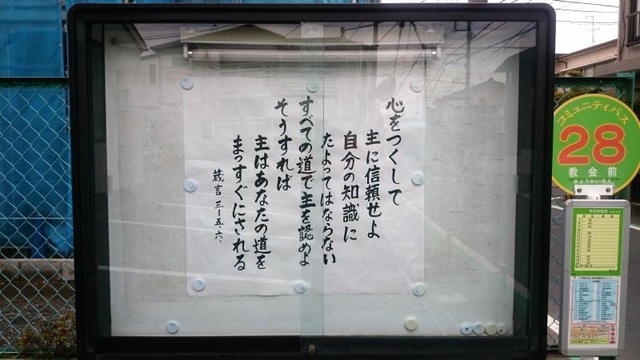 心をつくして
主に信頼せよ
自分の知識に
たよってはならない
すべての道で主を認めよ
そうすれば
主はあなたの道を
まっすぐにされる
箴言 三-五、六、
コミュニティバス
28
教会前
きょうかいまえ